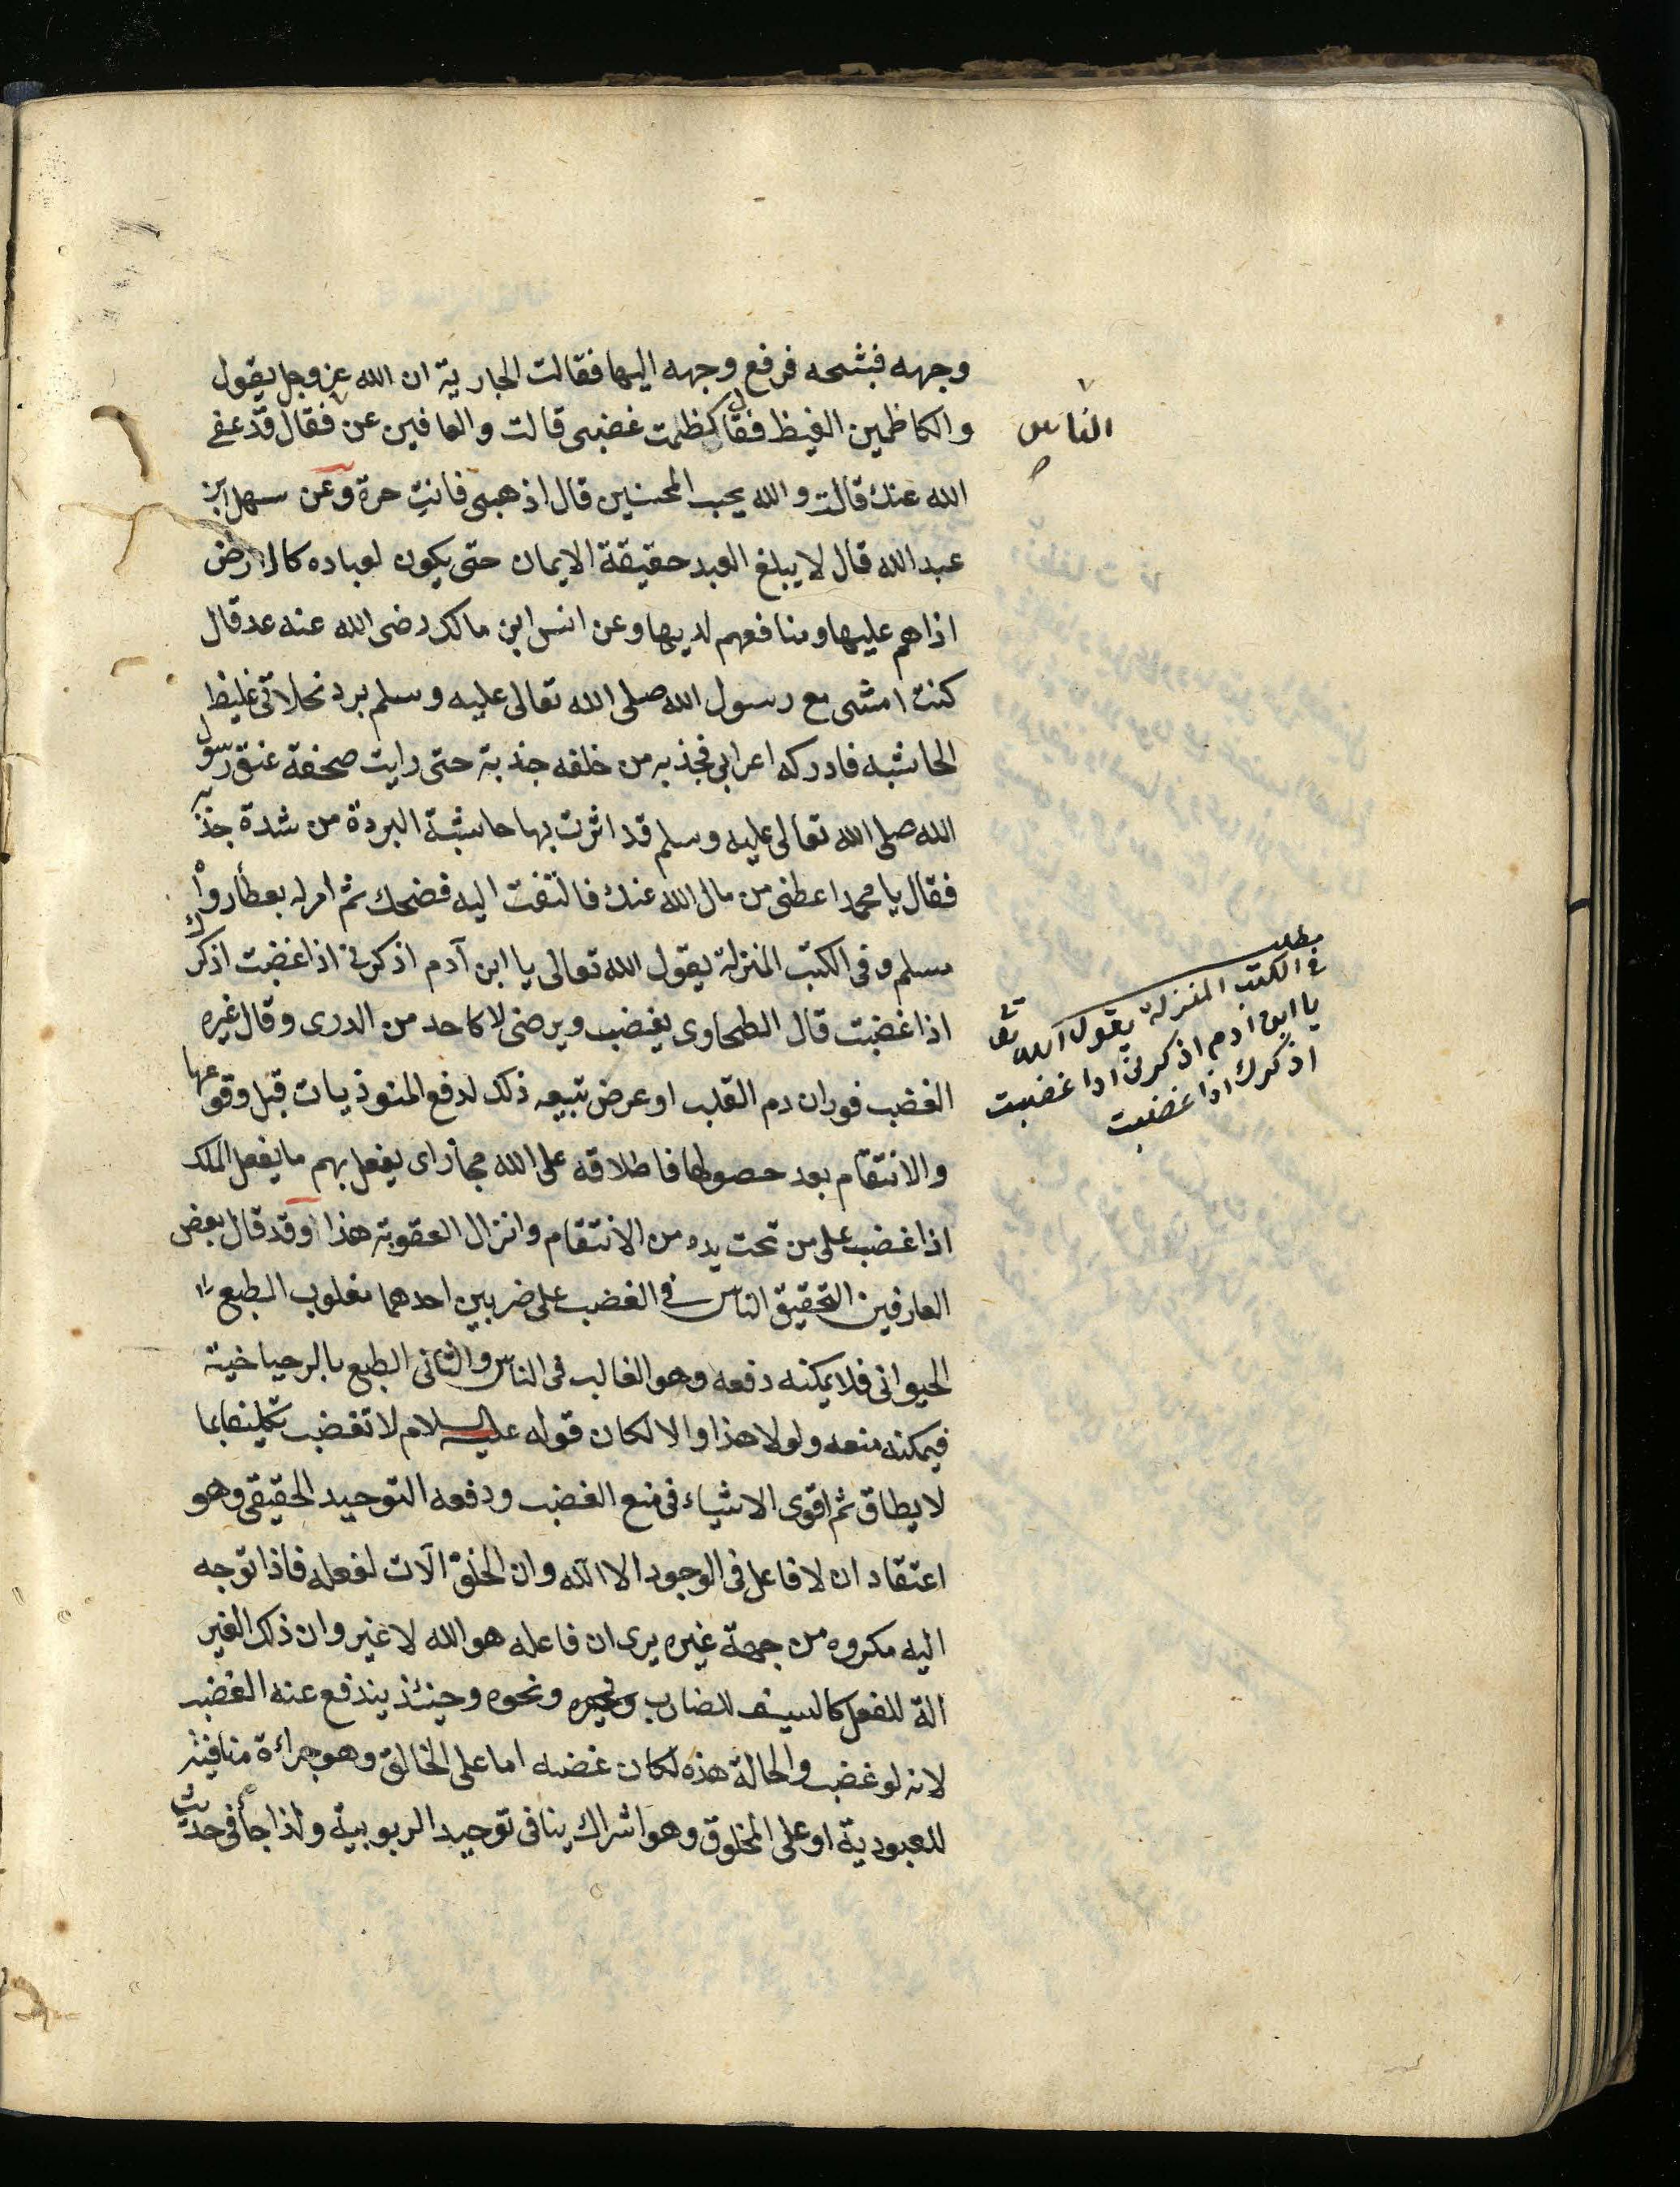 وجهه فشجه فرفع وجهه اليها فقالت الجارية ان الله عز وجل يقول
والكاظمين الغيظ فقال كظمت غضبى قالت والعافين عن فقال قد عفى
الناس
الله عنك قالت والله يحب المحسنين قال اذهبى فانت حرة وعن سهل ابن
عبد الله قال لا يبلغ العبد حقيقة الايمان حتى يكون لعباده كالارض
اذاهم عليها ومنافعهم لديها وعن انس ابن مالك رضى الله عنه قال
كنت امشى مع رسول الله صلى الله تعالى عليه وسلم برد غليظ
الحاشية فادركه اعرابى فجذبه من خلفه جذبة حتى رايت صحفة عنق رسول
الله صلى الله تعالى عليه وسلم قد اثرت بها حاشية البردة من شدة جذبه
فقال يا محمد اعطنى من مال الله عندك فالتفت اليه فضحك ثم امر له بعطأ رواه
مسلم وفى الكتب المنزلة يقول الله تعالى يا ابن آدم اذكرنى اذا غضبت اذكرك
اذا غضبت قال الطحاوى يغضب ويرضى لا كاحد من الورى وقال غيره
الغضب فوران دم القلب او عرض تبيعه ذلك لدفع المئوذيات قبل وقوعها
والانتقام بعد حصولها فاطلاقه على الله مجاز اى يفعل بهم ما يفعل الملك
اذا غضب على من تحت يده من الانتقام وانزال العقوبة هذا وقد قال بعض
العارفين التحقيق الناس فى الغضب على ضربين احدهما مغلوب الطبع
الحيوانى فلا يمكنه دفعه وهو الغالب فى الناس والثانى الطبع بالرحياخية
فيمكنه منعه ولولا هذا والا لكان قوله عليه السلام لا تغضب تكليفا بما
لا يطاق ثم اقوى الاشياء فى منع الغضب ودفعه التوحيد الحقيقى وهو
اعتقاد ان لا فاعل فى الوجود الا الله وان الخلق آلات لفعله فاذا توجه
اليه مكروه من جهة غيره يرى ان فاعله هو الله لا غير وان ذلك الغير
الة للفعل كالسيف للضارب ونحوه وحينئذ يندفع عنه الغضب
لانه لو غضب والحالة هذه لكان غضبه اما على الخالق وهو جراءة منافية
للعبودية او على المخلوق وهو اشراك ينافى توحيد الربوبية ولذا جأ فى حديث
مطلب
فى الكتب المنزلة يقول الله تعا
يا ابن ادم اذكرنى اذا غضبت
اذكرك اذا غضبت